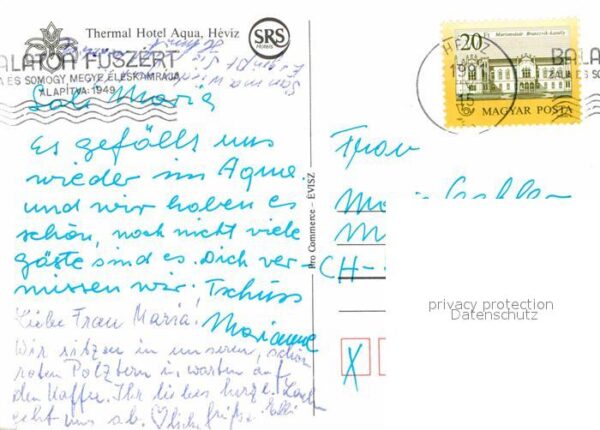 Thermal Hotel Aqua, Hévíz
SRS
Hotels
BALATON FÜSZÉRT
ZALA ES SOMOGY MEGYE ÉLÉSKAMRÁJA
ALAPÍTVA: 1949
Sali Maria
Es gefällt uns
wieder im Aqua
und wir haben es
schön, noch nicht viele
gäste sind es. Dich ver-
missen wir. Tschüss
Marianne
Liebe Frau Maria.
Wir sitzen in unseren, schön
roten Polstern u. warten auf
den Kaffee. Ihr liebes herzl. Lach
geht uns ab. Liebe Grüße
Pro Commerce - ÉVISZ
20 Ft
Martonvásár Brunszvik-kastély
MAGYAR POSTA
HÉVÍZ
199
15
BALA
ZALA ES SO
Frau
M
CH-
X
privacy protection
Datenschutz